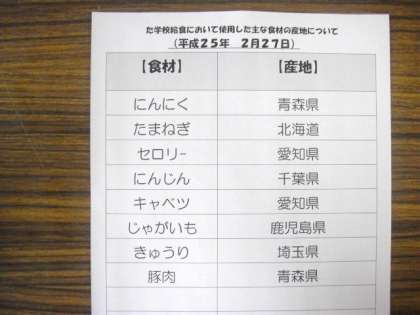 た学校給食において使用した主な食材の産地について
(平成25年　2月27日)
【食材】　【産地】
にんにく　青森県
たまねぎ　北海道
セロリー　愛知県
にんじん　千葉県
キャベツ　愛知県
じゃがいも　鹿児島県
きゅうり　埼玉県
豚肉　青森県